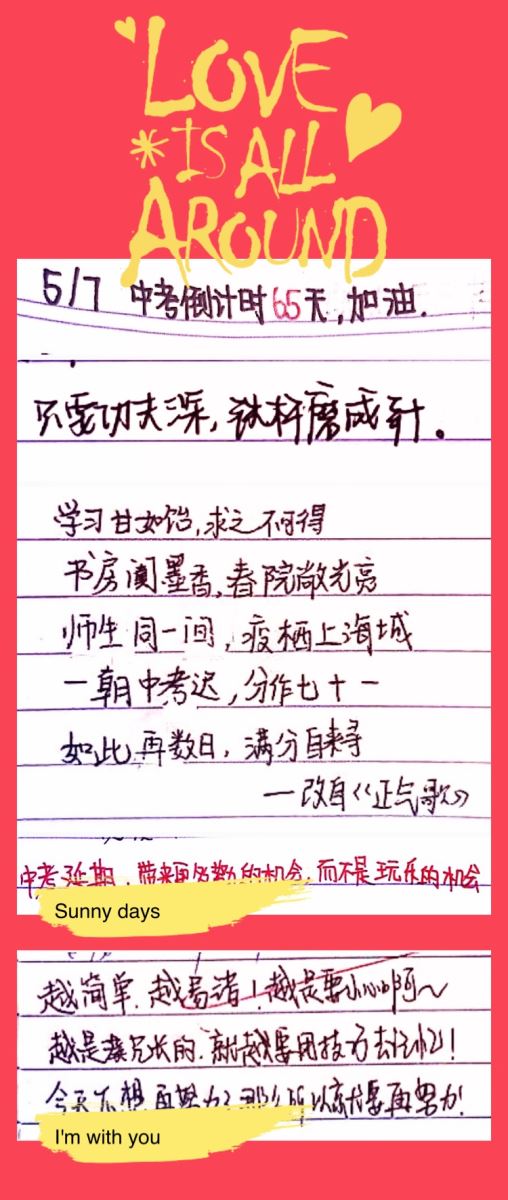 LOVE
IS ALL
AROUND
5/7 中考倒计时65天,加油.
只要功夫深,铁杵磨成针。
学习甘如饴,求之不可得
书房阗墨香,春院敞光亮
师生同一间,疫栖上海城
一朝中考迟,分作七十一
如此再数日,满分自来寻
一改自《正气歌》
中考延期,带来更多勤的机会,而不是玩乐的机会
Sunny days
越简单,越易错!越是要小心啊~
越是冗长的,就越要用技巧去记忆!
今天不想再努力?那么所以就要再努力!
I'm with you